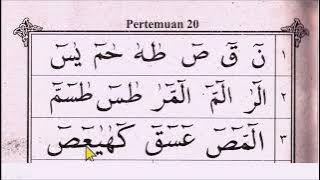 Pertemuan 20
١ نٓ قٓ صٓ طٰهٰ حٰمٓ يٰسٓ
٢ الٓرٰ الٓمٓ الٓمّٓرٰ طٰسٓ طٰسٓمّٓ
٣ الٓمّٓصٓ عٓسٓقٓ كٓهٰيٰعٓصٓ